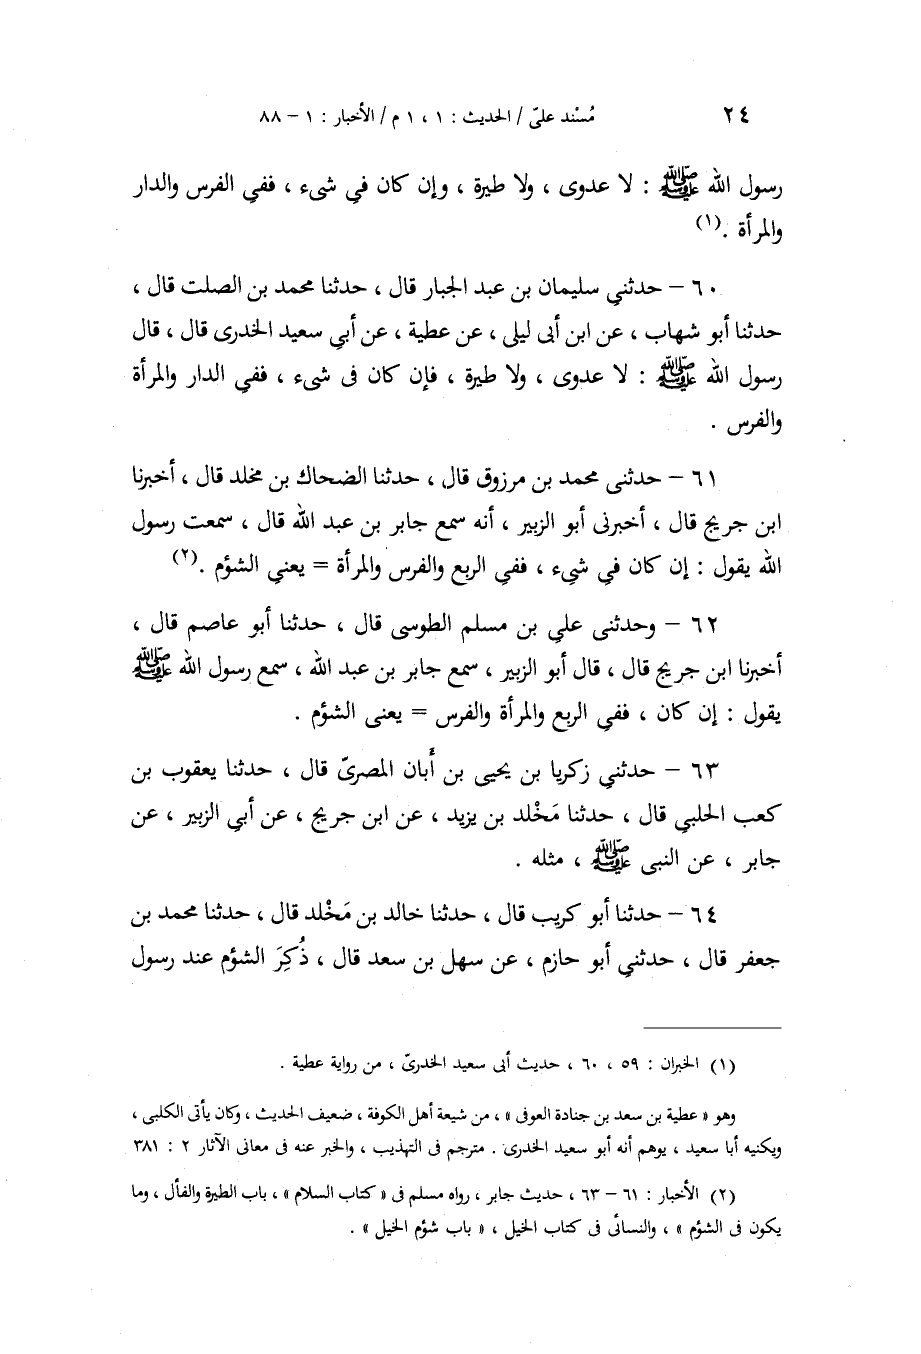 ٢٤ مُسْند علىّ / الحديث : ١ ، ١ م / الأخبار : ١ – ٨٨
رسول الله ﷺ : لا عدوى ، ولا طيرة ، وإن كان في شىء ، ففي الفرس والدار
والمرأة .(١)
٦٠ – حدثني سليمان بن عبد الجبار قال ، حدثنا محمد بن الصلت قال ،
حدثنا أبو شهاب ، عن ابن أبى ليلى ، عن عطية ، عن أبي سعيد الخدرى قال ، قال
رسول الله ﷺ : لا عدوى ، ولا طيرة ، فإن كان فى شىء ، ففي الدار والمرأة
والفرس .
٦١ – حدثنى محمد بن مرزوق قال ، حدثنا الضحاك بن مخلد قال ، أخبرنا
ابن جريج قال ، أخبرنى أبو الزبير ، أنه سمع جابر بن عبد الله قال ، سمعت رسول
الله يقول : إن كان في شيء ، ففي الربع والفرس والمرأة = يعني الشؤم .(٢)
٦٢ – وحدثنى علي بن مسلم الطوسى قال ، حدثنا أبو عاصم قال ،
أخبرنا ابن جريج قال ، قال أبو الزبير ، سمع جابر بن عبد الله ، سمع رسول الله ﷺ
يقول : إن كان ، ففي الربع والمرأة والفرس = يعنى الشؤم .
٦٣ – حدثني زكريا بن يحيى بن أَبان المصرىّ قال ، حدثنا يعقوب بن
كعب الحلبي قال ، حدثنا مَخْلد بن يزيد ، عن ابن جريج ، عن أبي الزبير ، عن
جابر ، عن النبى ﷺ ، مثله .
٦٤ – حدثنا أبو كريب قال ، حدثنا خالد بن مَخْلد قال ، حدثنا محمد بن
جعفر قال ، حدثني أبو حازم ، عن سهل بن سعد قال ، ذُكِرَ الشؤم عند رسول
(١) الخبران : ٥٩ ، ٦٠ ، حديث أبى سعيد الخدرىّ ، من رواية عطية .
وهو « عطية بن سعد بن جنادة العوفى » ، من شيعة أهل الكوفة ، ضعيف الحديث ، وكان يأتى الكلبى ،
ويكنيه أبا سعيد ، يوهم أنه أبو سعيد الخدرى . مترجم فى التهذيب ، والخبر عنه فى معانى الآثار ٢ : ٣٨١
(٢) الأخبار : ٦١ – ٦٣ ، حديث جابر ، رواه مسلم فى « كتاب السلام » ، باب الطيرة والفأل ، وما
يكون فى الشؤم » ، والنسائى فى كتاب الخيل ، « باب شؤم الخيل » .